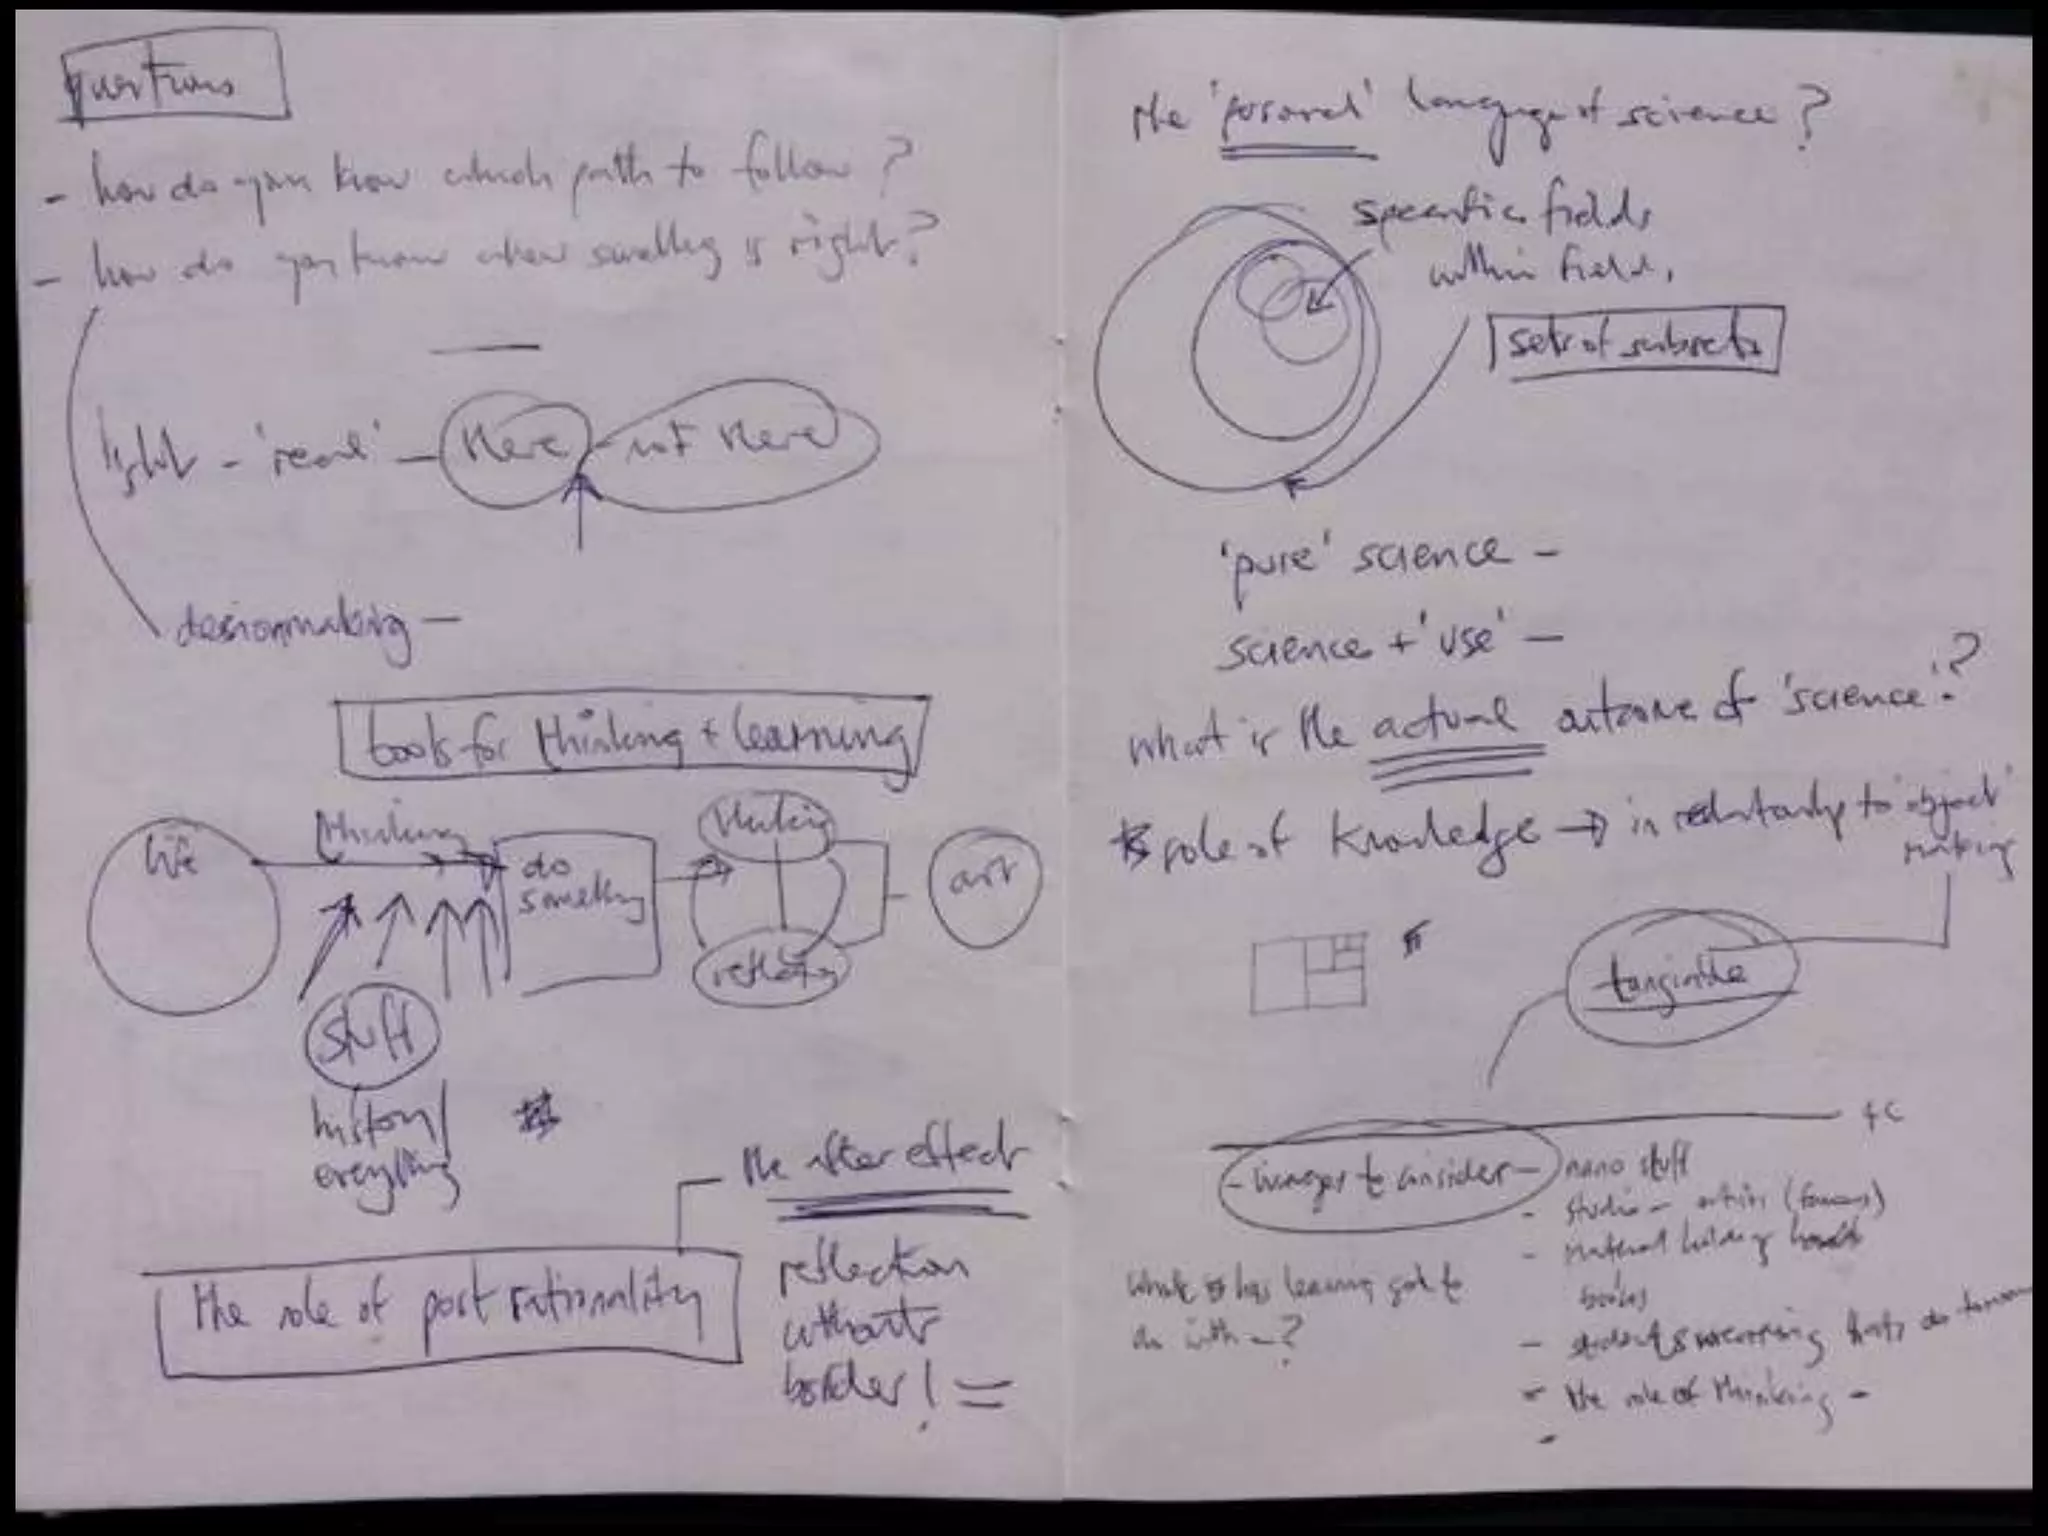 questions
- how do you know which path to follow?
- how do you know when something is right?
light - 'real' - there - not there
desionmaking -
tools for thinking + learning
life
thinking
do
something
thinking
reflecting
art
stuff
history/
everything
the after effect
the role of post rationality
reflection
without
border! =
the 'personal' language of science?
specific fields
within fields,
sets of subsets
'pure' science -
science + 'use' -
what is the actual outcome of 'science'?
role of knowledge → in relationship to 'object'
making
tangible
- images to consider -
nano stuff
- studio - artists (famous)
- material building
books
what has learning got to
do with -?
- students
- the role of thinking -